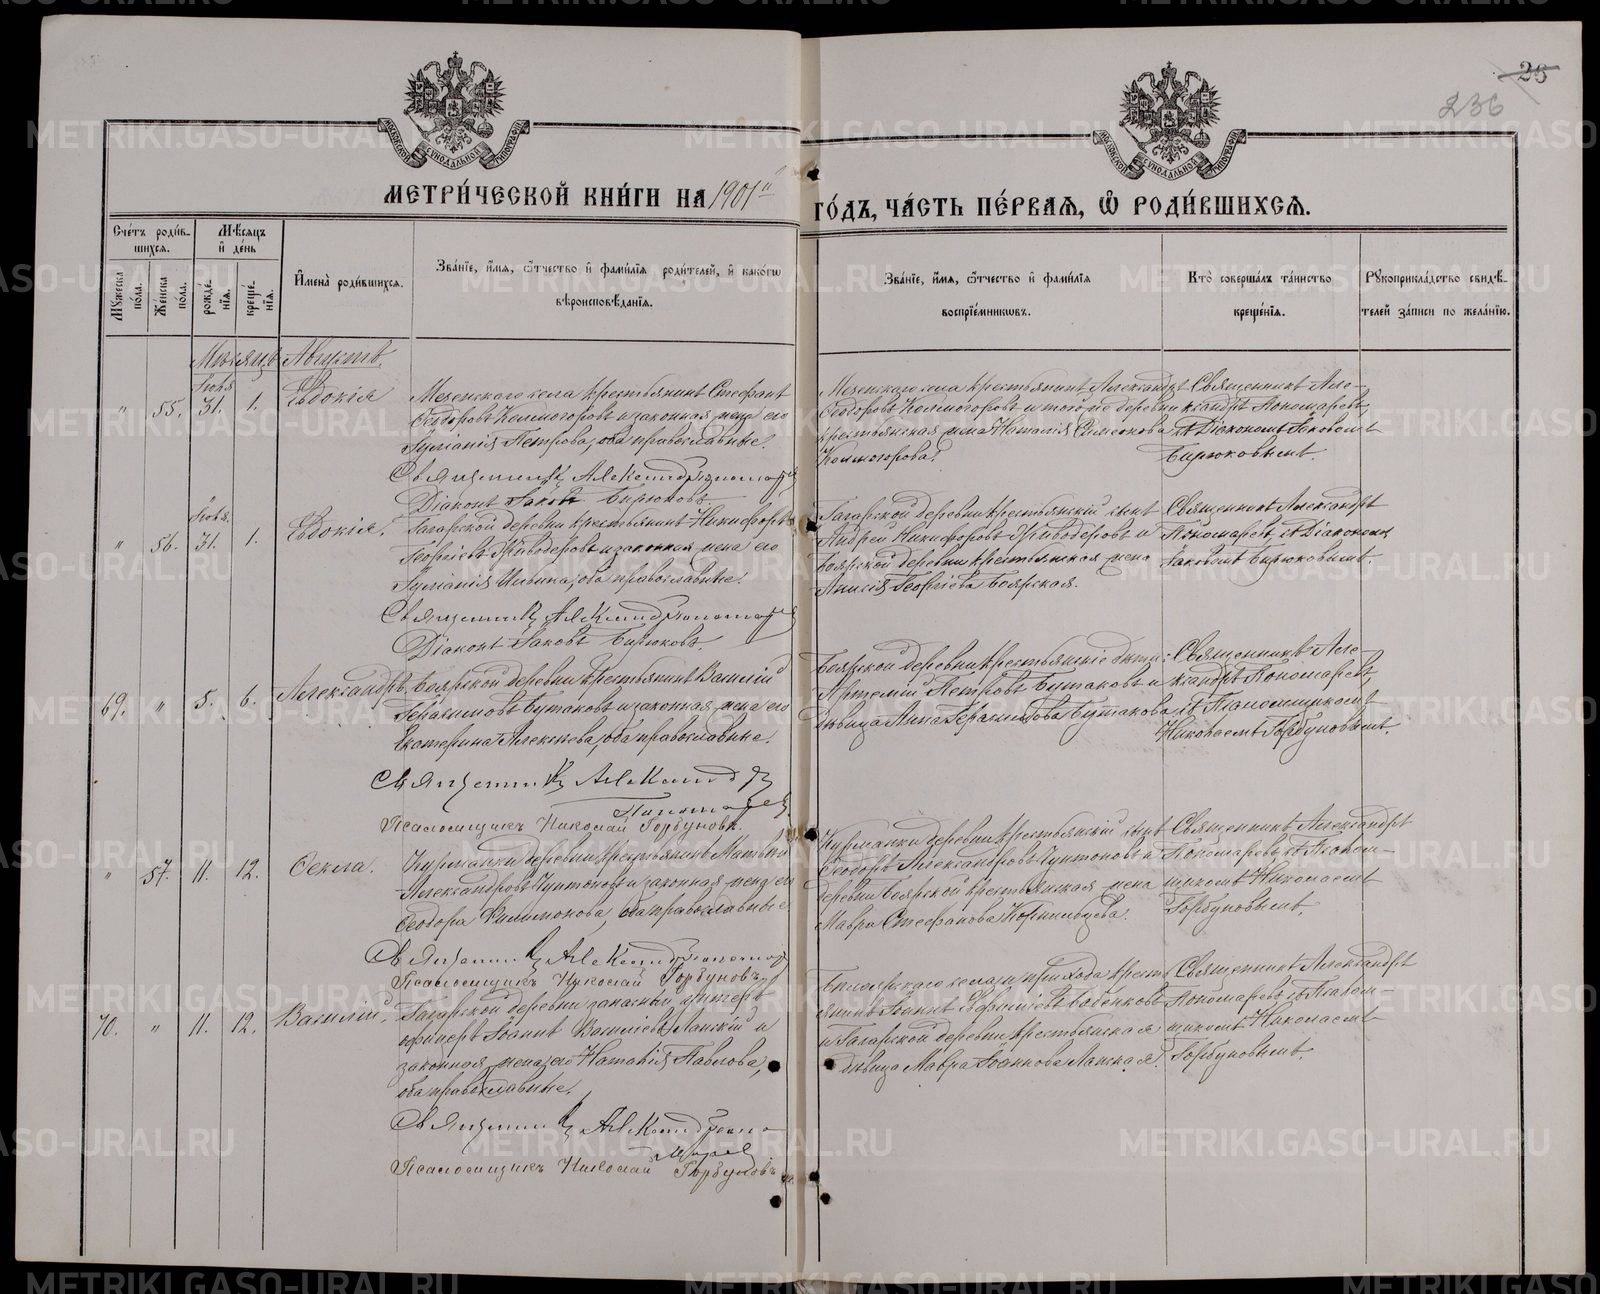 25
236
МОСКОВСКОЙ СУНОДАЛЬНОЙ ТИПОГРАФІИ
МОСКОВСКОЙ СУНОДАЛЬНОЙ ТИПОГРАФІИ
МЕТРИ́ЧЕСКОЙ КНИ́ГИ НА 1901й ГО́ДЪ, ЧА́СТЬ ПЕ́РВАЯ, Ѡ РОДИ́ВШИХСЯ.
Сче́тъ роди́в-
шихся.
Му́жеска
пола.
Же́нска
пола.
Мѣ́сяцъ
и̂ де́нь
рожде́-
нїя.
креще́-
нїя.
И̂мена̀ роди́вшихся.
Зва́нїе, и̂́мя, ѻ̂́тчество и̂ фами́лїя роди́телей, и̂ како́гѡ
вѣроисповѣ́данїя.
Зва́нїе, и̂́мя, ѻ̂́тчество и̂ фами́лїя
воспрїе́мниковъ.
Кто̀ соверша́лъ та́инство
креще́нїя.
Рꙋкоприкла́дство свидѣ́-
телей за́писи по жела́нїю.
Мѣсяцъ Августъ.
" 55. Іюля 31. 1. Евдокія
Мезенскаго села крестьянинъ Стефанъ
Ѳеодоровъ Колмогоровъ и законная жена его
Іуліанія Петрова, оба православные.
Священникъ Александръ Пономаревъ
Діаконъ Іаковъ Бирюковъ.
Мезенскаго села крестьянинъ Александръ
Ѳеодоровъ Колмогоровъ и той же деревни
крестьянская жена Наталія Симеонова
Колмогорова.
Священникъ Але-
ксандръ Пономаревъ
съ Діакономъ Іаковомъ
Бирюковымъ.
" 56. Іюля 31. 1. Евдокія.
Гагарской деревни крестьянинъ Никифоръ
Георгіевъ Криводеровъ и законная жена его
Іуліанія Ильина, оба православные.
Священникъ Александръ Пономаревъ
Діаконъ Іаковъ Бирюковъ.
Гагарской деревни крестьянскій сынъ
Андрей Никифоровъ Криводеровъ и
Боярской деревни крестьянская жена
Анисія Георгіева Боярская.
Священникъ Александръ
Пономаревъ съ Діакономъ
Іаковомъ Бирюковымъ.
69. " 5. 6. Александръ
Боярской деревни крестьянинъ Василій
Герасимовъ Бутаковъ и законная жена его
Екатерина Алексѣева, оба православные.
Священникъ Александръ
Пономаревъ
Псаломщикъ Николай Горбуновъ.
Боярской деревни крестьянскіе дѣти:
Артемій Петровъ Бутаковъ и
дѣвица Анна Герасимова Бутакова
Священникъ Але-
ксандръ Пономаревъ
съ Псаломщикомъ
Николаемъ Горбуновымъ.
" 57. 11. 12. Ѳекла.
Курманки деревни крестьянинъ Матвѣй
Александровъ и законная жена его
Ѳеодора Филимонова, оба православные.
Священникъ Александръ Пономаревъ
Псаломщикъ Николай Горбуновъ
Курманки деревни крестьянскій сынъ
Ѳеодоръ Александровъ и
деревни Боярской крестьянская жена
Мавра Стефанова
Священникъ Александръ
Пономаревъ съ Псалом-
щикомъ Николаемъ
Горбуновымъ.
70. " 11. 12. Василій.
Гагарской деревни запасный унтеръ
офицеръ Іоаннъ Василіевъ и
законная жена его Наталія Павлова,
оба православные.
Священникъ Александръ Поно-
маревъ
Псаломщикъ Николай Горбуновъ
прихода крест-
янинъ Іоаннъ
и Гагарской деревни крестьянская
дѣвица Мавра Іоаннова
Священникъ Александръ
Пономаревъ съ Псалом-
щикомъ Николаемъ
Горбуновымъ.
METRIKI.GASO-URAL.RU